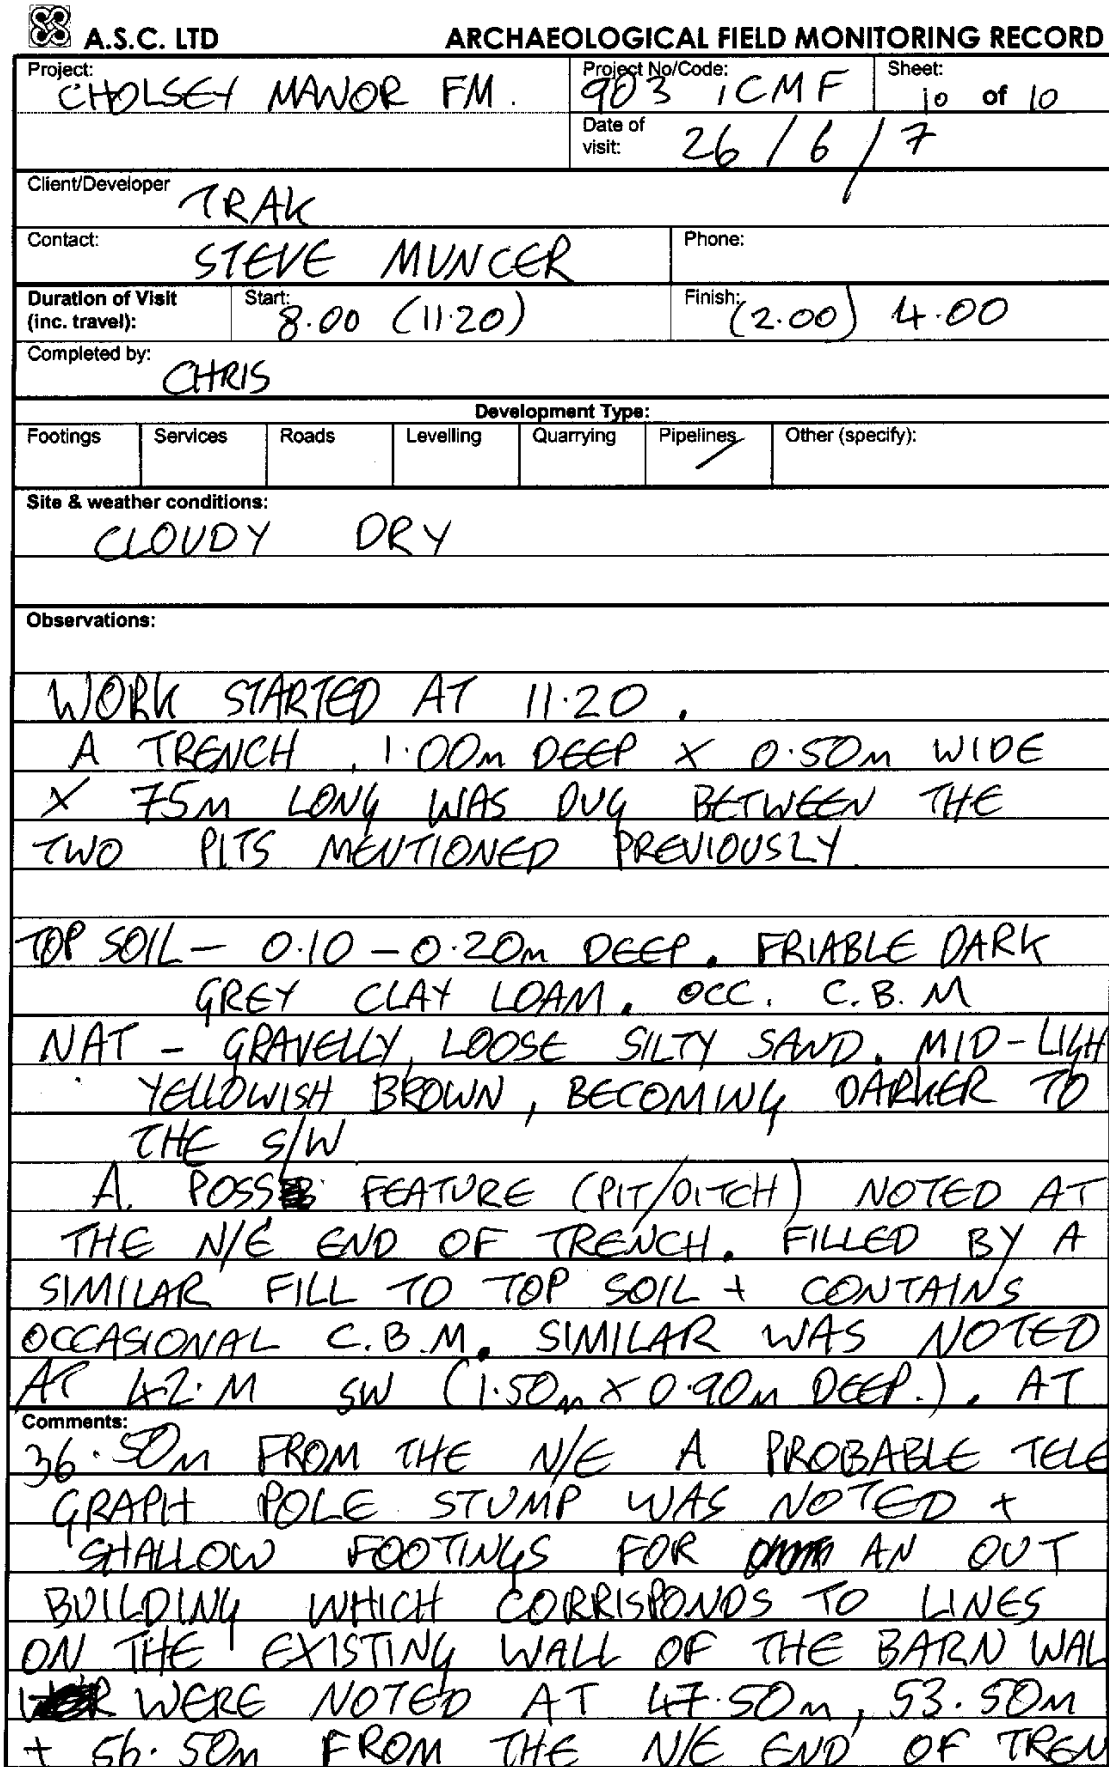 A.S.C. LTD ARCHAEOLOGICAL FIELD MONITORING RECORD
Project: CHOLSEY MANOR FM. Project No/Code: 903 / CMF Sheet: 10 of 10
Date of visit: 26 / 6 / 7
Client/Developer TRAK
Contact: STEVE MUNCER Phone:
Duration of Visit (inc. travel): Start: 8.00 (11.20) Finish: (2.00) 4.00
Completed by: CHRIS
Development Type:
Footings Services Roads Levelling Quarrying Pipelines Other (specify):
Site & weather conditions:
CLOUDY DRY
Observations:
WORK STARTED AT 11.20.
A TRENCH, 1.00m DEEP X 0.50m WIDE
X 75M LONG WAS DUG BETWEEN THE
TWO PITS MENTIONED PREVIOUSLY.
TOP SOIL - 0.10 - 0.20m DEEP. FRIABLE DARK
GREY CLAY LOAM. OCC. C.B.M
NAT - GRAVELLY, LOOSE SILTY SAND. MID-LIGH
YELLOWISH BROWN, BECOMING DARKER TO
THE S/W
A. POSS FEATURE (PIT/DITCH) NOTED AT
THE N/E END OF TRENCH. FILLED BY A
SIMILAR FILL TO TOP SOIL + CONTAINS
OCCASIONAL C.B.M. SIMILAR WAS NOTED
AT 42.M SW (1.50m X 0.90m DEEP.). AT
Comments:
36.50m FROM THE N/E A PROBABLE TELE
GRAPH POLE STUMP WAS NOTED +
SHALLOW FOOTINGS FOR AN OUT
BUILDING WHICH CORRISPONDS TO LINES
ON THE EXISTING WALL OF THE BARN WAL
WERE NOTED AT 47.50m, 53.50m
+ 56.50m FROM THE N/E END OF TREN